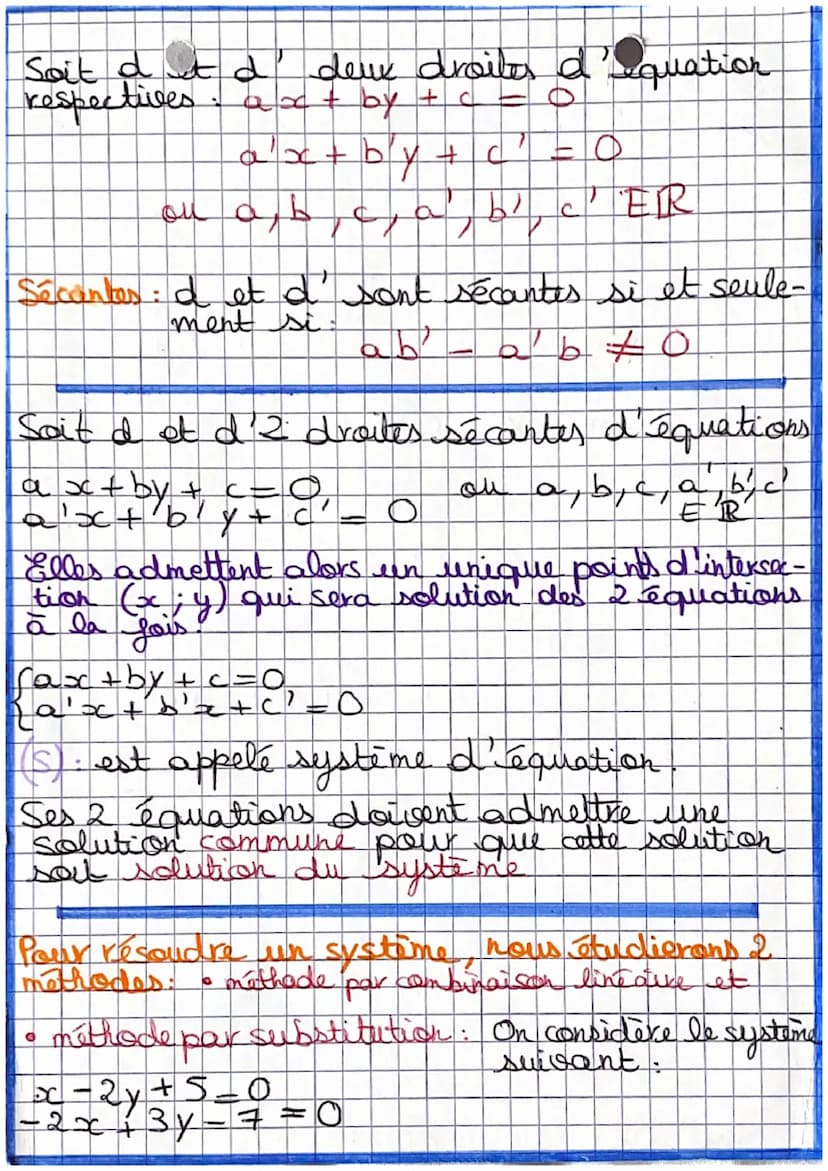 Soit d et d' deux droites d'équation
respectives : ax + by + c = 0
a'x + b'y + c' = 0
ou a, b, c, a', b', c' ∈ ℝ
Sécantes : d et d' sont sécantes si et seule-
ment si :
ab' - a'b ≠ 0
Soit d et d' 2 droites sécantes d'équations
ax + by + c = 0 ou a, b, c, a', b', c'
a'x + b'y + c' = 0 ∈ ℝ
Elles admettent alors un unique points d'intersec-
tion (x ; y) qui sera solution des 2 équations
à la fois.
{ax + by + c = 0
{a'x + b'x + c' = 0
(S) : est appelé système d'équation.
Ses 2 équations doivent admettre une
solution commune pour que cette solution
soit solution du système
Pour résoudre un système, nous étudierons 2
méthodes : • méthode par combinaison linéaire et
• méthode par substitution : On considère le système
suivant :
x - 2y + 5 = 0
-2x + 3y - 7 = 0